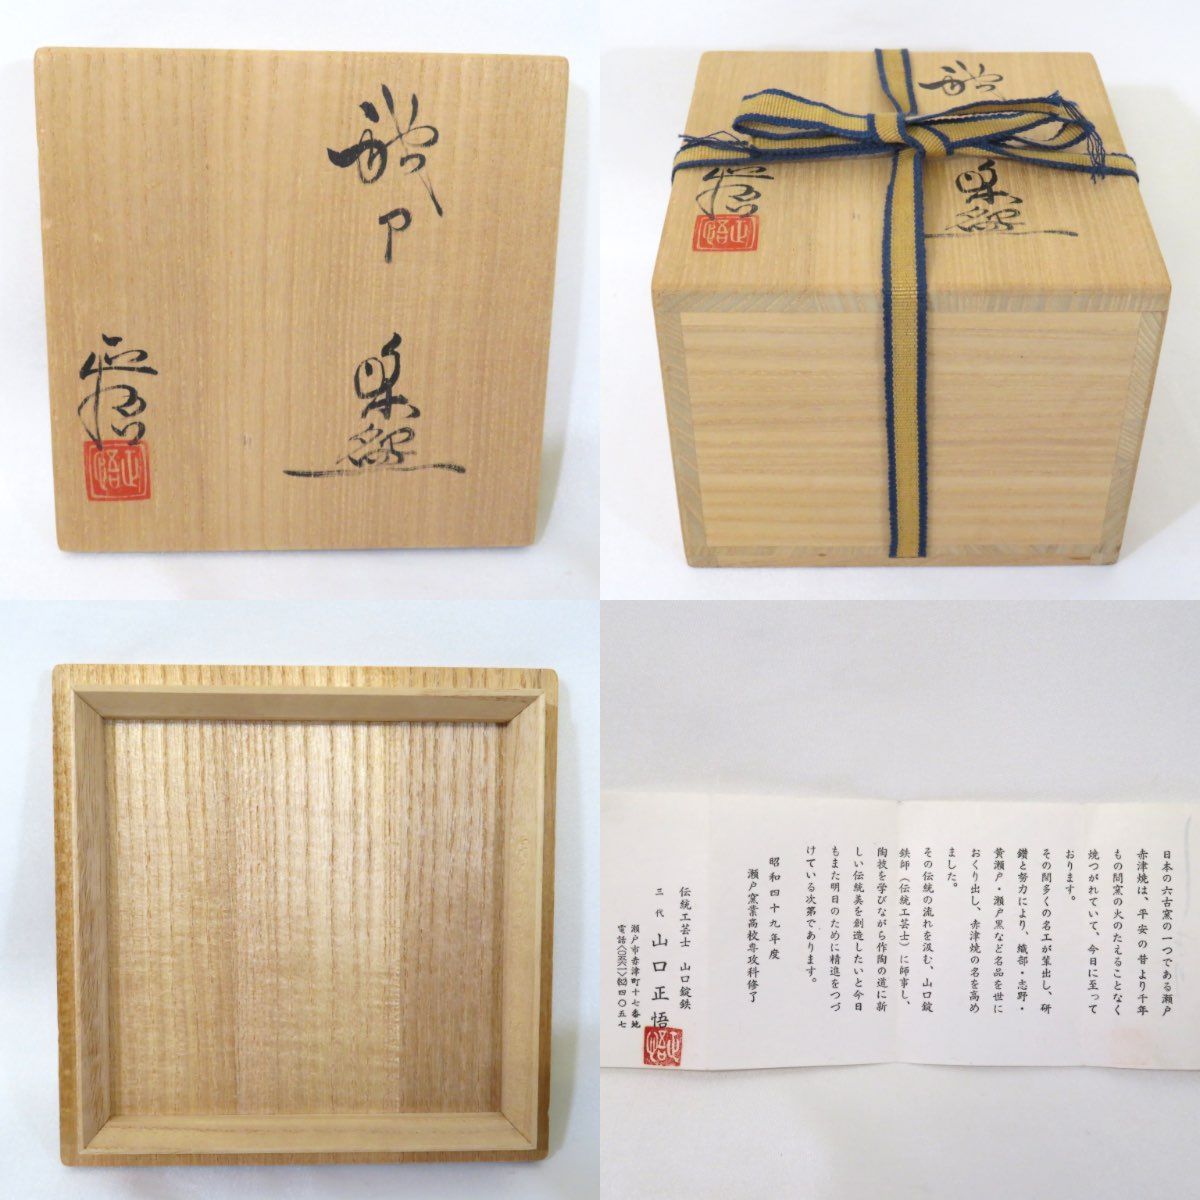 正悟
正悟
正悟
正悟
日本の六古窯の一つである瀬戸
赤津焼は、平安の昔より千年
もの間窯の火のたえることなく
焼つがれていて、今日に至って
おります。
その間多くの名工が輩出し、研
鑽と努力により、織部・志野・
黄瀬戸・瀬戸黒など名品を世に
おくり出し、赤津焼の名を高め
ました。
その伝統の流れを汲む、山口錠
鉄師(伝統工芸士)に師事し、
陶技を学びながら作陶の道に新
しい伝統美を創造したいと今日
もまた明日のために精進をつづ
けている次第であります。
昭和四十九年度
瀬戸窯業高校専攻科修了
伝統工芸士 山口錠鉄
三代 山口正悟
瀬戸市赤津町十七番地
正悟